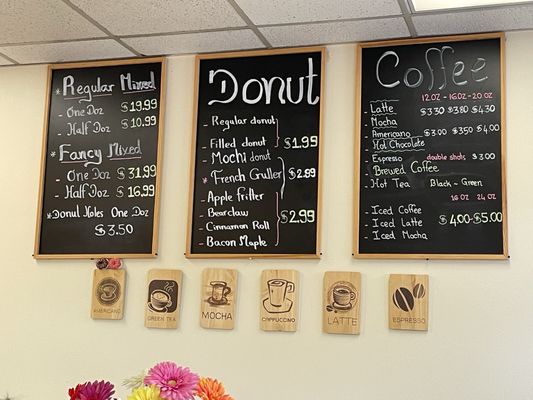 Regular Mixed
- One Doz $19.99
- Half Doz $10.99
* Fancy Mixed
- One Doz $31.99
- Half Doz $16.99
* Donut Holes One Doz
$3.50
Donut
- Regular donut
- Filled donut $1.99
- Mochi donut
* French Cruller $2.89
- Apple fritter
- Bearclaw
- Cinnamon Roll $2.99
- Bacon Maple
Coffee
12 oz - 16 oz - 20 oz
- Latte $3.30 $3.80 $4.30
- Mocha
- Americano $3.00 $3.50 $4.00
Hot Chocolate
- Espresso double shots $3.00
- Brewed Coffee
- Hot Tea Black - Green
16 oz 24 oz
- Iced Coffee
- Iced Latte $4.00-$5.00
- Iced Mocha
AMERICANO
GREEN TEA
MOCHA
CAPPUCCINO
LATTE
ESPRESSO